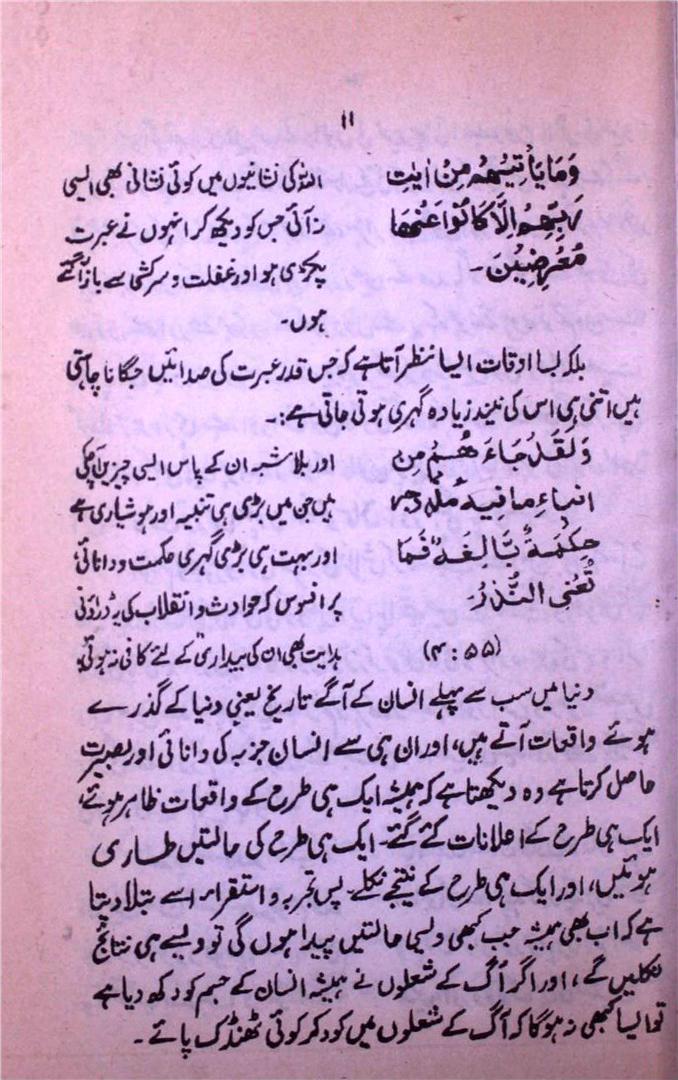 ۱۱
وَمَا یَاْتِیْہِمْ مِنْ اٰیٰتِ اللہ کی نشانیوں میں کوئی نشانی بھی ایسی
رَبِّہِمْ اِلَّا کَانُوْا عَنْہَا نہ آئی جس کو دیکھ کر انہوں نے عبرت
مُعْرِضِیْنَ۔ پکڑی ہو اور غفلت و سرکشی سے باز آگئے
ہوں۔
بلکہ بسا اوقات ایسا نظر آتا ہے کہ جس قدر عبرت کی صدائیں جگانا چاہتی
ہیں اتنی ہی اس کی نیند زیادہ گہری ہوتی جاتی ہے :۔
وَلَقَدْ جَاءَ ھُمْ مِن اور بلا شبہ ان کے پاس ایسی چیزیں آچکی
انباءِ مافیہ مُزدجر ہیں جن میں بڑی ہی تنبیہ اور ہوشیاری ہے
حِکْمَۃٌ بَّالِغَۃٌ فَمَا اور بہت ہی بڑی گہری حکمت و دانائی،
تُغْنِی النُّذُرُ۔ پر افسوس کہ حوادث و انقلاب کی
(۵۵ : ۴) ہدایت بھی ان کی بیداری کے لئے کافی نہ ہوئی،
دنیا میں سب سے پہلے انسان کے آگے تاریخ یعنی دنیا کے گذرے
ہوئے واقعات آتے ہیں، اور ان ہی سے انسان حزبہ کی دانائی اور بصیرت
حاصل کرتا ہے وہ دیکھتا ہے کہ ہمیشہ ایک ہی طرح کے واقعات ظاہر ہوئے،
ایک ہی طرح کے اعلانات کئے گئے۔ ایک ہی طرح کی حالتیں طاری
ہوئیں، اور ایک ہی طرح کے نتیجے نکلے۔ پس تجربہ و استقرار اسے بتلا دیتا
ہے کہ اب بھی ہمیشہ جب کبھی ویسی حالتیں پیدا ہوں گی تو ویسے ہی نتائج
نکلیں گے، اور اگر آگ کے شعلوں نے ہمیشہ انسان کے جسم کو دکھ دیا ہے
تو ایسا کبھی نہ ہوگا کہ آگ کے شعلوں میں کود کر کوئی ٹھنڈک پائے۔